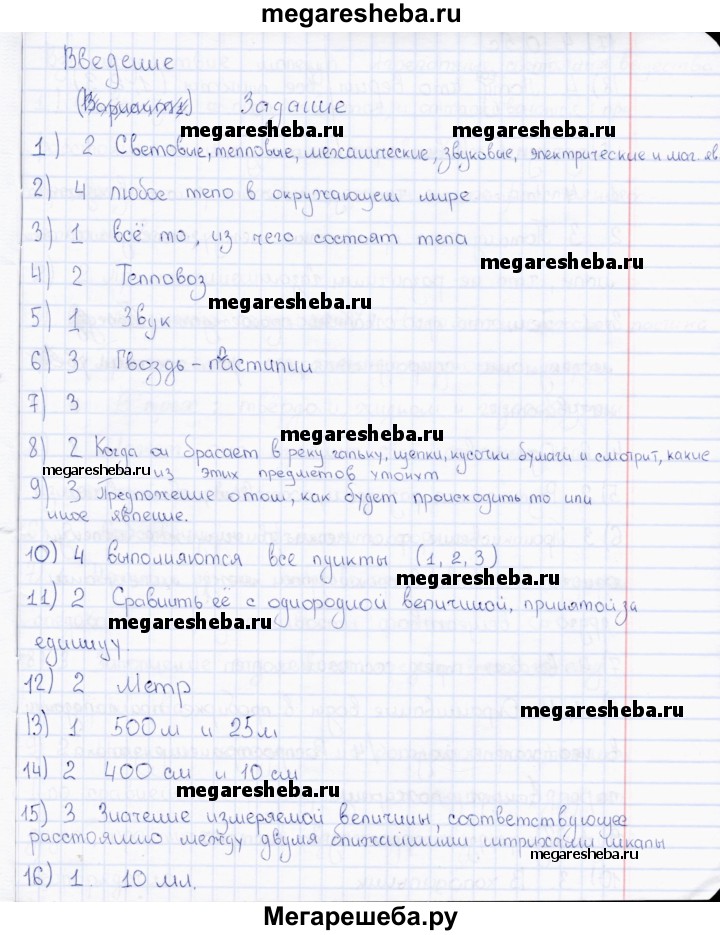 megaresheba.ru
Введение
(Вариант 1) Задание
megaresheba.ru megaresheba.ru
1) 2 Световые, тепловые, механические, звуковые, электрические и маг. яв
2) 4 любое тело в окружающем мире
3) 1 всё то, из чего состоят тела
megaresheba.ru
4) 2 Тепловоз
megaresheba.ru
5) 1 Звук
6) 3 Гвоздь -
7) 3
megaresheba.ru
8) 2 Когда он брасает в реку гальку, щепки, кусочки бумаги и смотрит, какие
megaresheba.ru из этих предметов утонут
9) 3 Предположение о том, как будет происходить то или
иное явление.
10) 4 выполняются все пункты (1, 2, 3)
megaresheba.ru
11) 2 Сравнить её с однородной величиной, принятой за
megaresheba.ru
единицу.
12) 2 Метр
megaresheba.ru
13) 1 500м и 25м
14) 2 400 см и 10 см
megaresheba.ru
15) 3 Значение измеряемой величины, соответствующее
расстоянию между двумя ближайшими штрихами шкалы
megaresheba.ru
16) 1. 10 мл.
Мегарешеба.ру